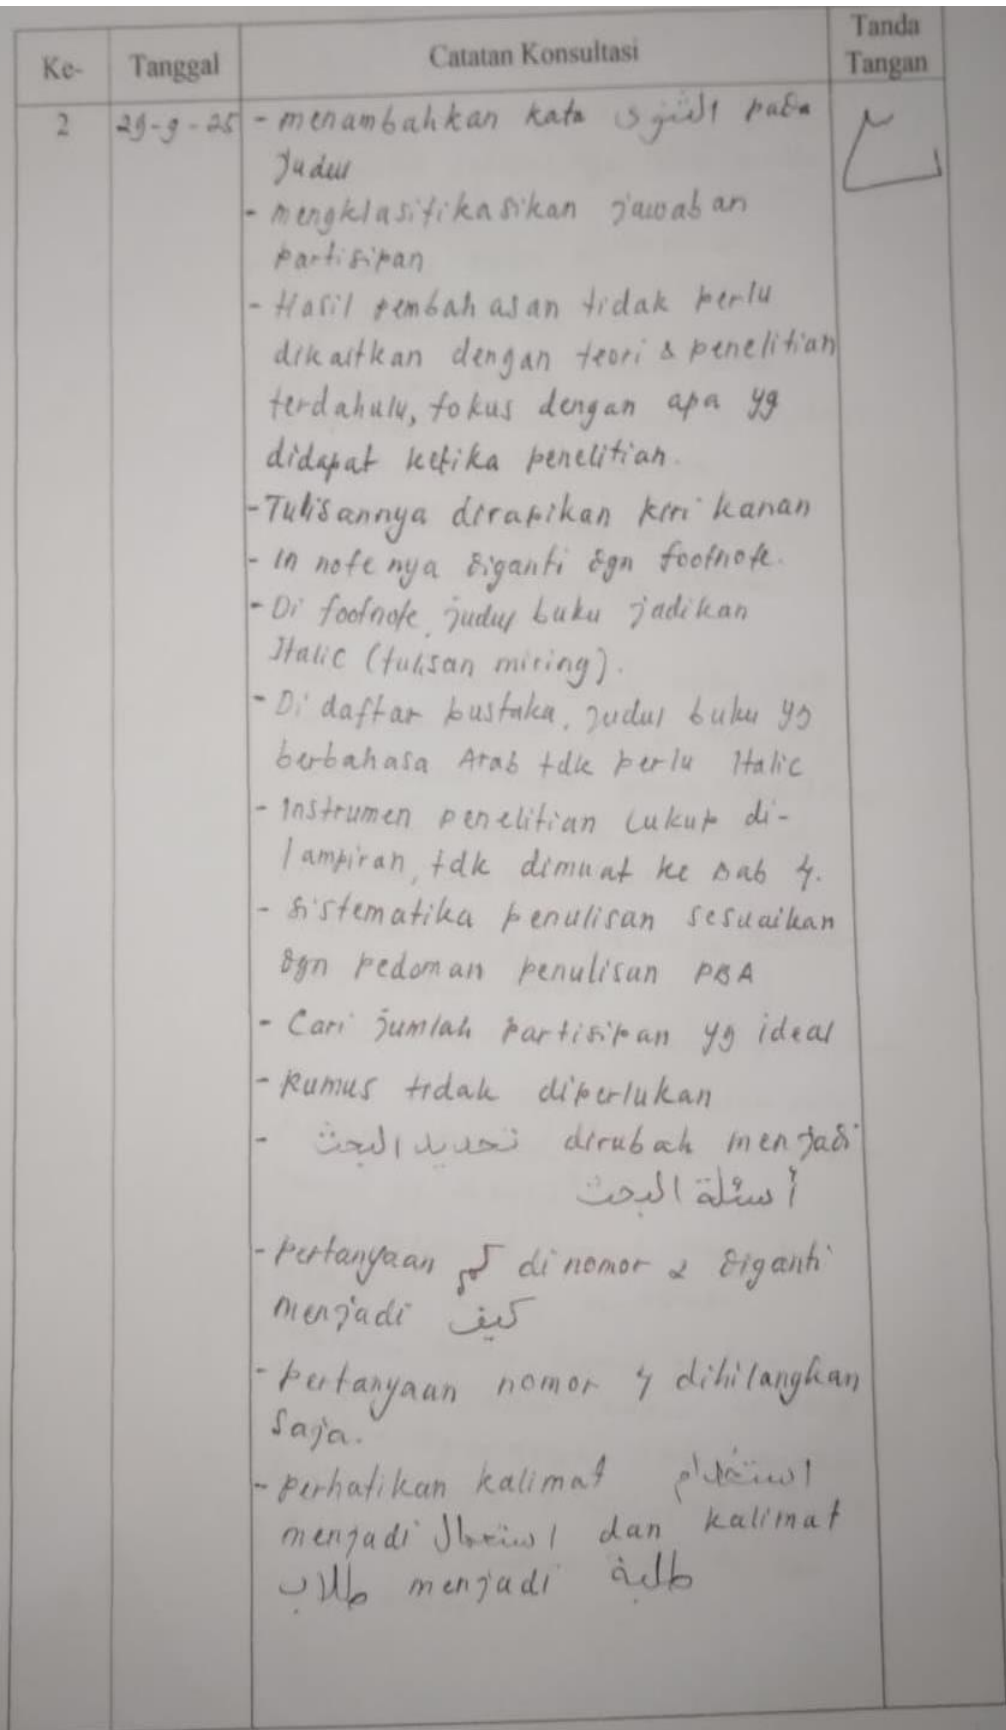 Ke- Tanggal Catatan Konsultasi Tanda Tangan
2 29-9-25 - menambahkan kata اللغوى pada
judul
- mengklasifikasikan jawaban
partisipan
- Hasil pembahasan tidak perlu
dikaitkan dengan teori & penelitian
terdahulu, fokus dengan apa yg
didapat ketika penelitian.
- Tulisannya dirapikan kiri kanan
- In note nya diganti dgn footnote.
- Di footnote, judul buku jadikan
Italic (tulisan miring).
- Di daftar pustaka, judul buku yg
berbahasa Arab tdk perlu Italic
- Instrumen penelitian cukup di-
lampiran, tdk dimuat ke Bab 4.
- Sistematika penulisan sesuaikan
dgn pedoman penulisan PBA
- Cari jumlah partisipan yg ideal
- Rumus tidak diperlukan
- تحديد البحث dirubah menjadi
أسئلة البحث
- Pertanyaan كم di nomor 2 diganti
menjadi كيف
- Pertanyaan nomor 4 dihilangkan
saja.
- Perhatikan kalimat استخدام
menjadi استعمال dan kalimat
طلبة menjadi طلاب